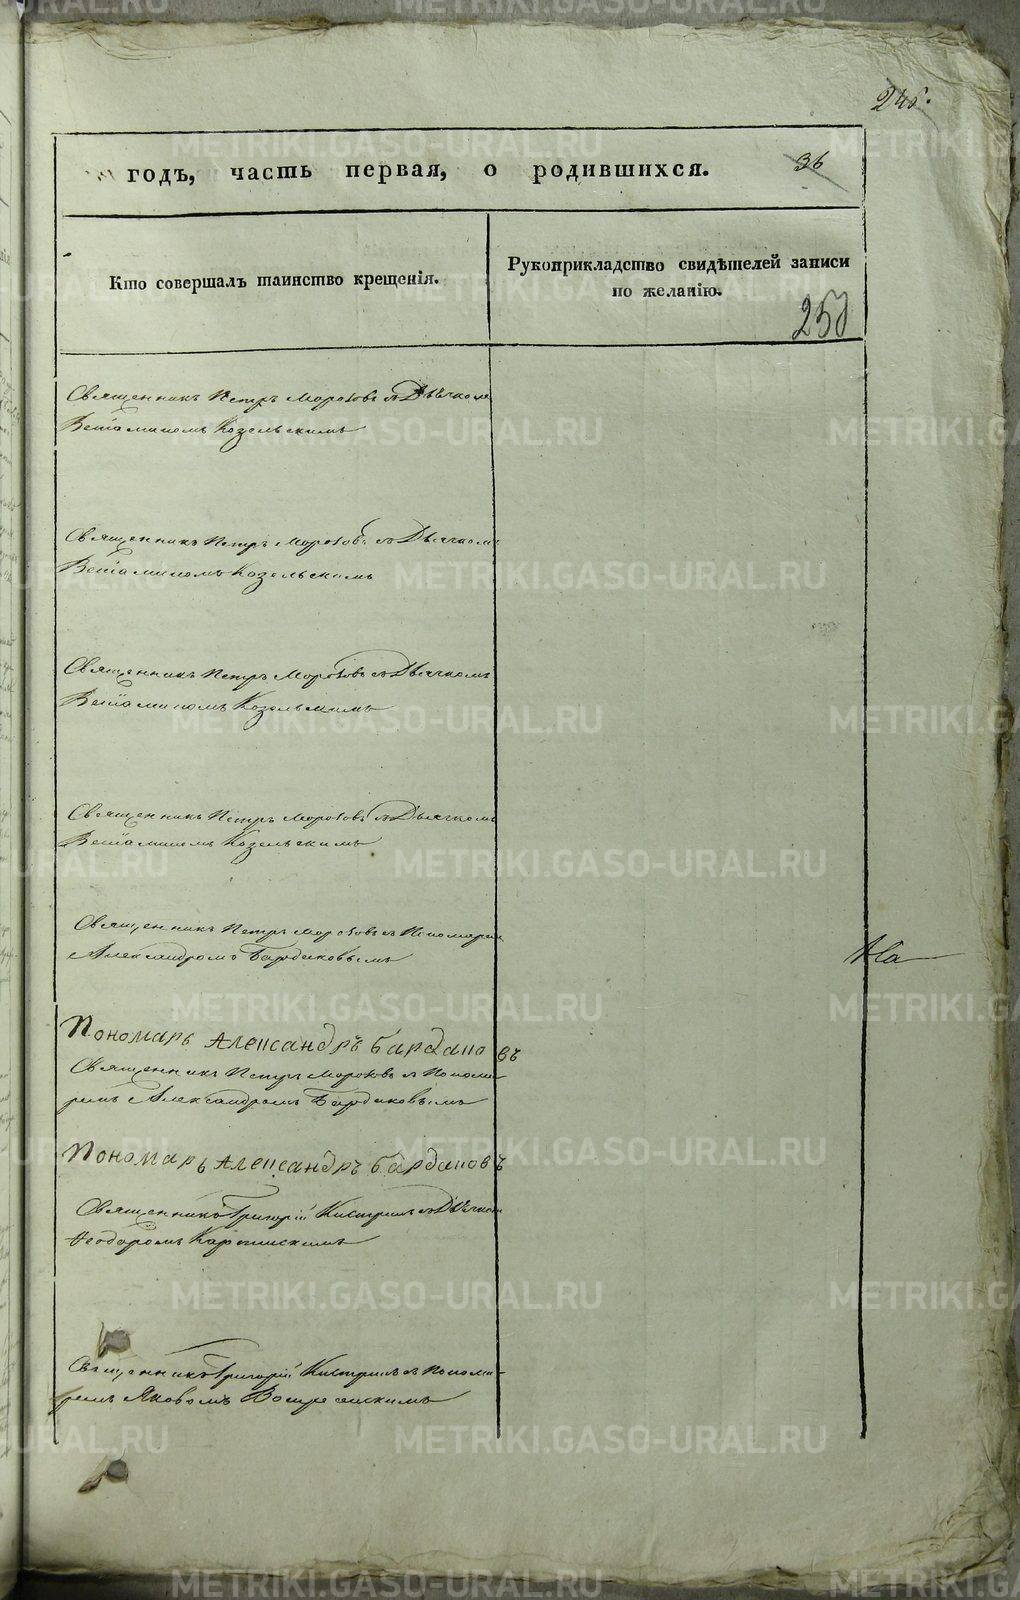 245.
годъ, часть первая, о родившихся.
36
Кто совершалъ таинство крещенія.
Рукоприкладство свидѣтелей записи
по желанію.
250
Священникъ Петръ Морозовъ съ Дьячкомъ
Веніаминомъ Козельскимъ
Священникъ Петръ Морозовъ съ Дьячкомъ
Веніаминомъ Козельскимъ
Священникъ Петръ Морозовъ съ Дьячкомъ
Веніаминомъ Козельскимъ
Священникъ Петръ Морозовъ съ Дьячкомъ
Веніаминомъ Козельскимъ
Священникъ Петръ Морозовъ съ Пономаремъ
Александромъ Бардаковымъ
Пономарь Александръ Бардаковъ
Священникъ Петръ Морозовъ съ Понома-
ремъ Александромъ Бардаковымъ
Пономарь Александръ Бардаковъ
Священникъ Григорій съ Дьячкомъ
Ѳеодоромъ
Священникъ Григорій съ Понома-
ремъ Яковомъ Воскресенскимъ
METRIKI.GASO-URAL.RU